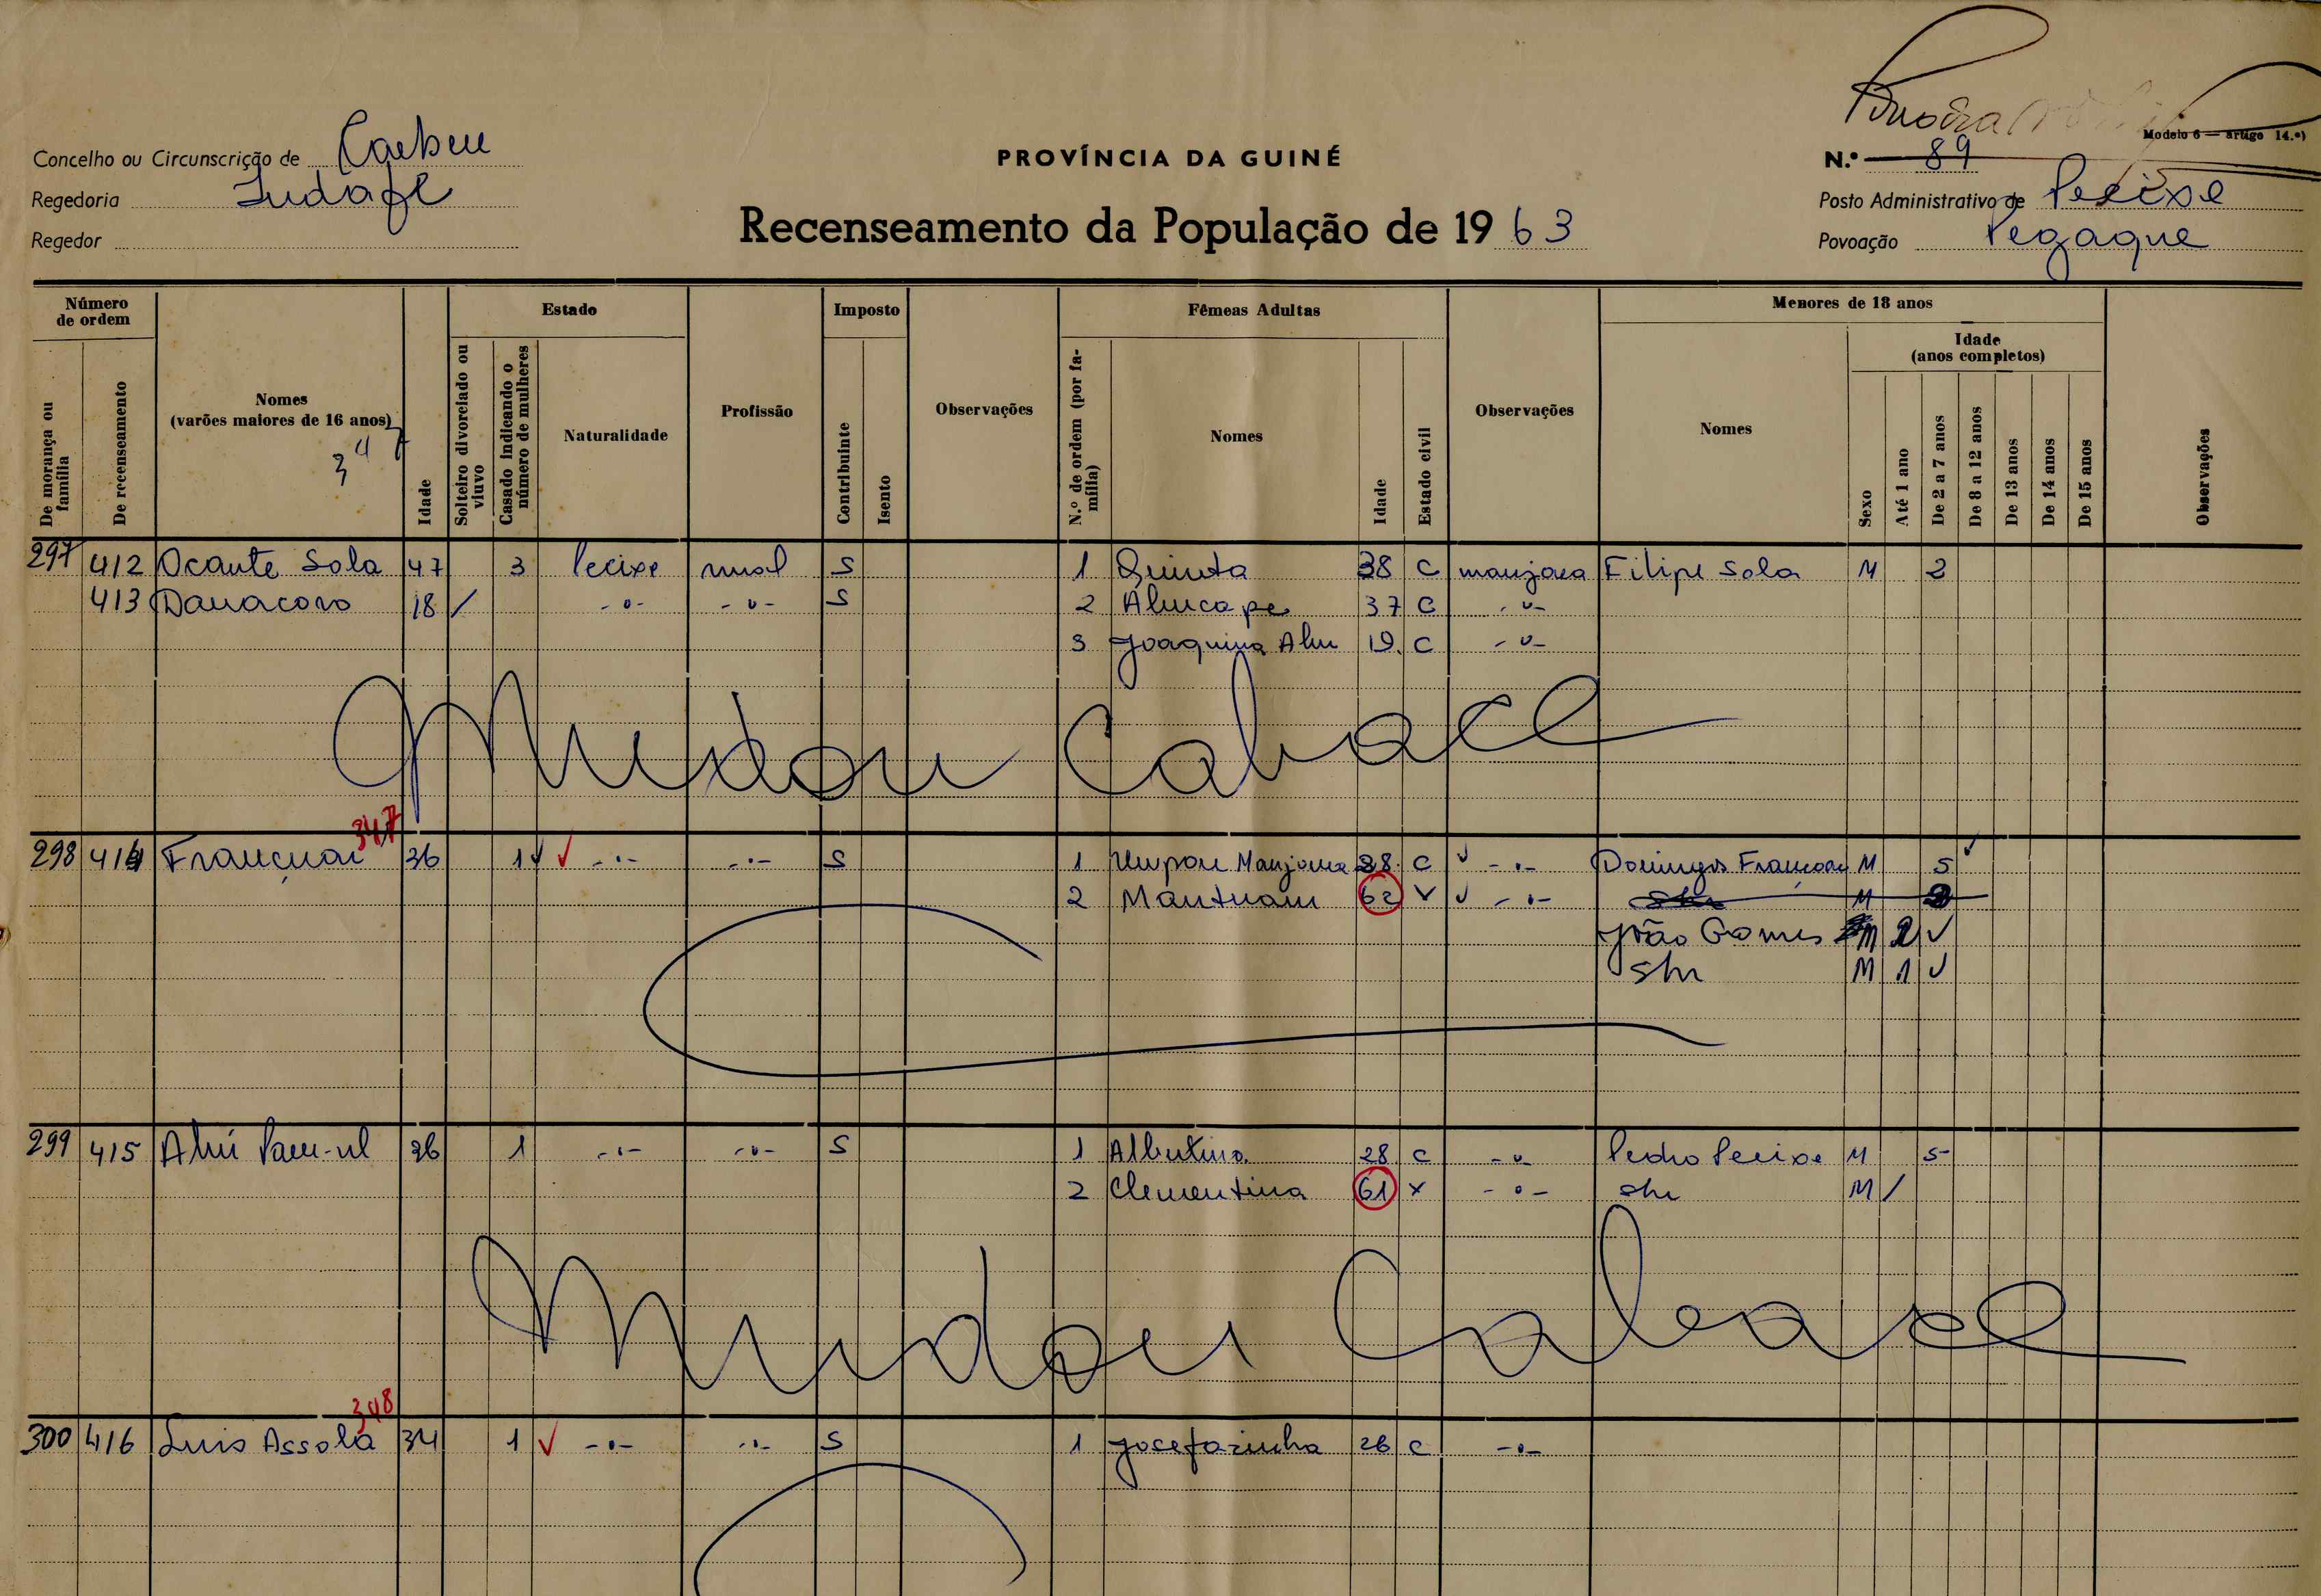 Modelo 6 — artigo 14.º)
Concelho ou Circunscrição de
PROVÍNCIA DA GUINÉ
N.º 89
Regedoria
Posto Administrativo de Pecixe
Recenseamento da População de 19 63
Regedor
Povoação Pegaque
Número de ordem
Estado
Imposto
Fêmeas Adultas
Menores de 18 anos
Idade
(anos completos)
De morança ou família
De recenseamento
Nomes
(varões maiores de 16 anos)
347
Idade
Solteiro divorciado ou viuvo
Casado indicando o número de mulheres
Naturalidade
Profissão
Contribuinte
Isento
Observações
N.º de ordem (por família)
Nomes
Idade
Estado civil
Observações
Nomes
Sexo
Até 1 ano
De 2 a 7 anos
De 8 a 12 anos
De 13 anos
De 14 anos
De 15 anos
Observações
297 412 Ocante Sola 47 3 Pecixe S 1 Quinta 38 C Filipe Sola M 2
413 18 / -o- -o- S 2 37 C -o-
3 Joaquina 19 C -o-
Mudou
347
298 414 Françuai 36 1 ✓ -.- -.- S 1 28 C ✓ -.- Domingos M 5 ✓
2 Mantuam 62 V ✓ -.- M
João Gomes M 2 ✓
M 1 ✓
299 415 26 1 -.- -o- S 1 Albertina 28 C -o- Pedro Pecixe M 5
2 Clementina 61 -o- M /
Mudou
348
300 416 Luis Assola 34 1 ✓ -.- -.- S 1 Josefazinha 26 C -o-